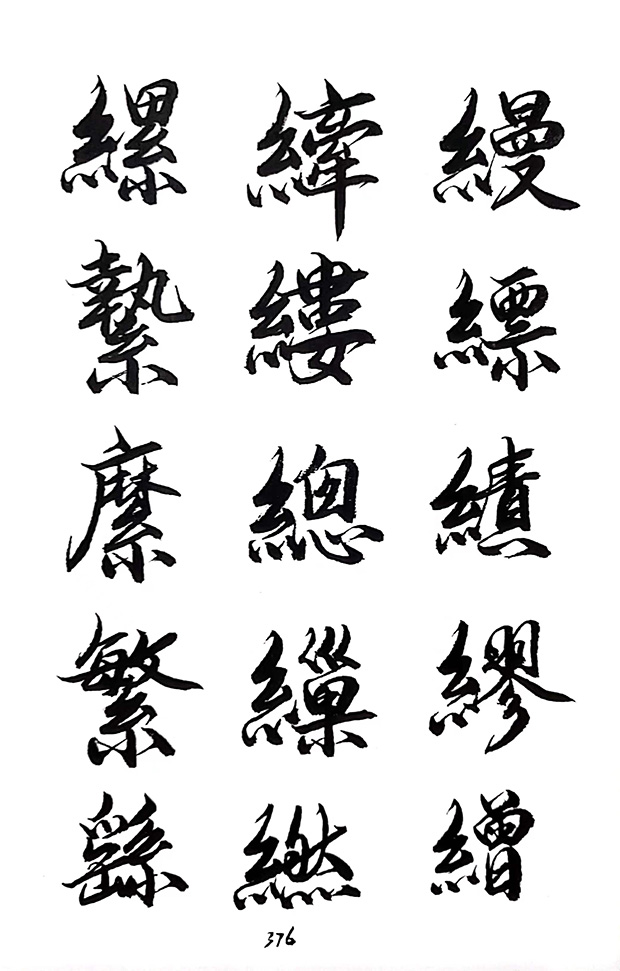 縲縴縵
縶縷縹
縻總績
繁繅繆
繇繎繒
376